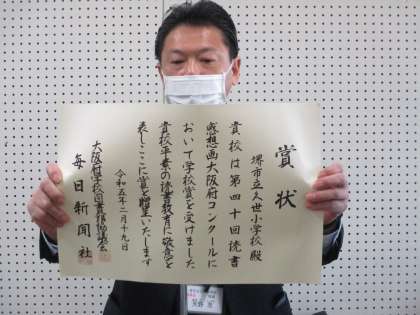 賞状
堺市立久世小学校 殿
貴校は第四十回読書
感想画大阪府コンクールに
おいて学校賞を受けました
貴校平素の読書教育に敬意を
表しここに賞を贈呈いたします
令和五年二月十九日
大阪府学校図書館協議会
毎日新聞社